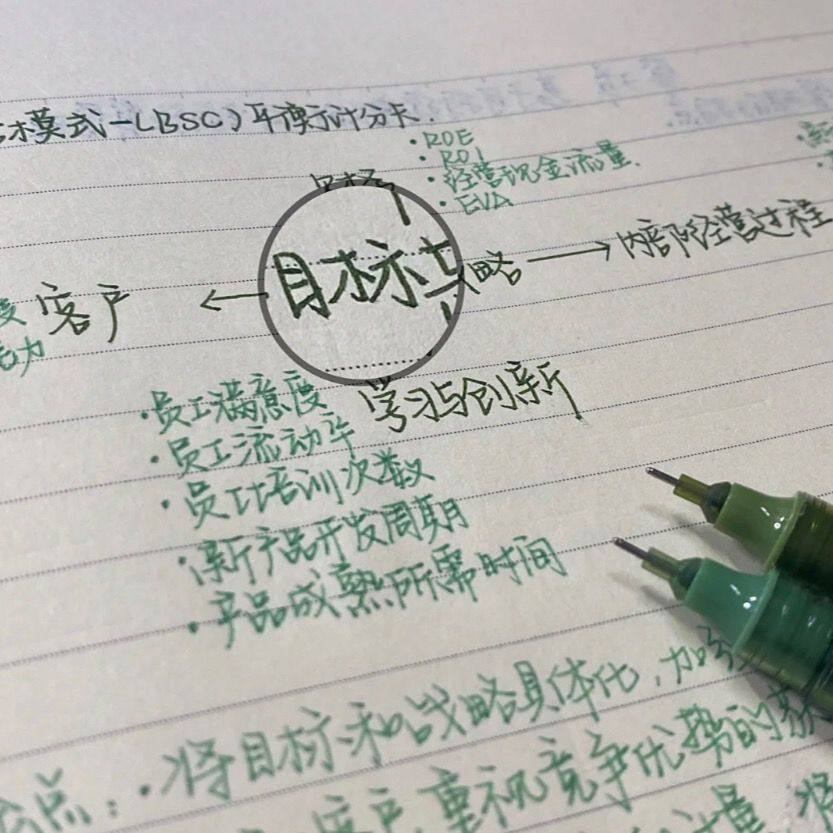 模式-(BSC)平衡计分卡.
· ROE
· ROI
· 经营现金流量.
· EVA
财务
目标战略 → 内部经营过程
客户 ←
学习与创新
· 员工满意度
· 员工流动率
· 员工培训次数
· 新产品开发周期
· 产品成熟所需时间
点: · 将目标和战略具体化, 加强
客户, 重视竞争优势的